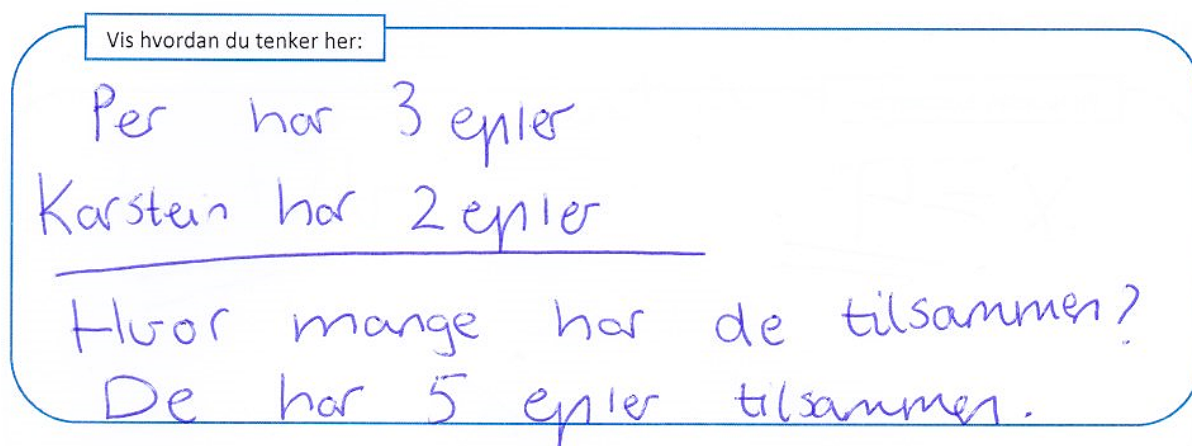 Vis hvordan du tenker her:
Per har 3 epler
Karstein har 2 epler
Hvor mange har de tilsammen?
De har 5 epler tilsammen.